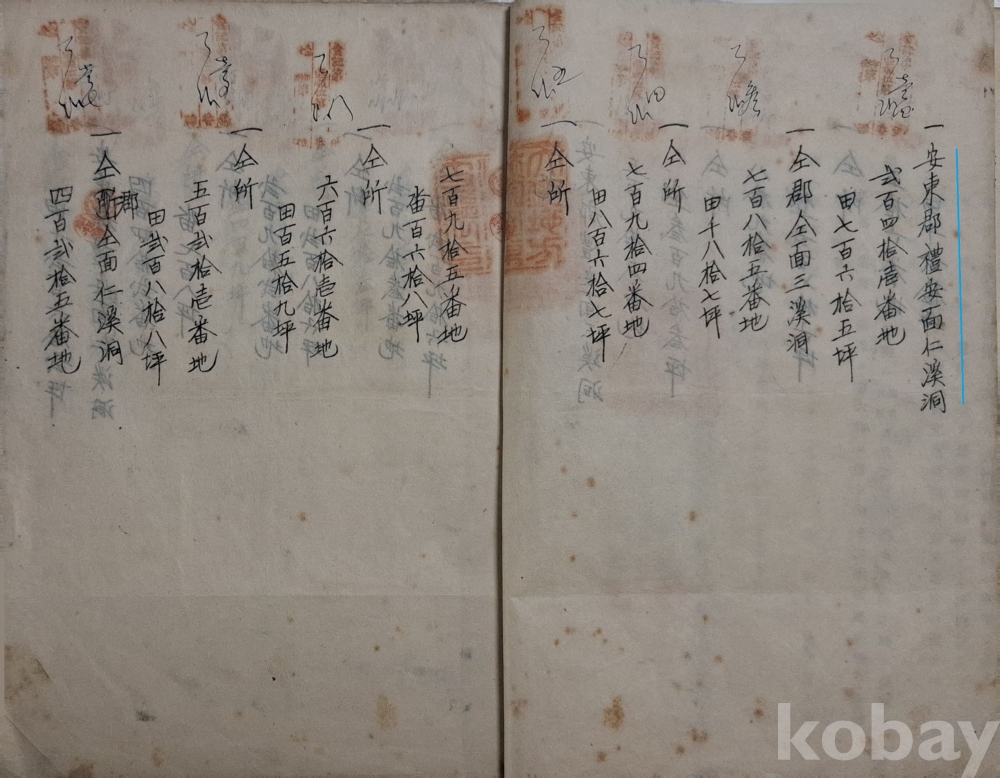 一 安東郡禮安面仁溪洞
貳百四拾壹番地
田七百六拾五坪
一 仝郡仝面三溪洞
七百八拾五番地
田千八拾七坪
一 仝所
七百九拾四番地
田八百六拾七坪
一 仝所
七百九拾五番地
畓百六拾八坪
一 仝所
六百六拾壹番地
田百五拾九坪
一 仝所
五百貳拾壹番地
田貳百八拾八坪
一 仝郡仝面仁溪洞
四百貳拾五番地
kobay